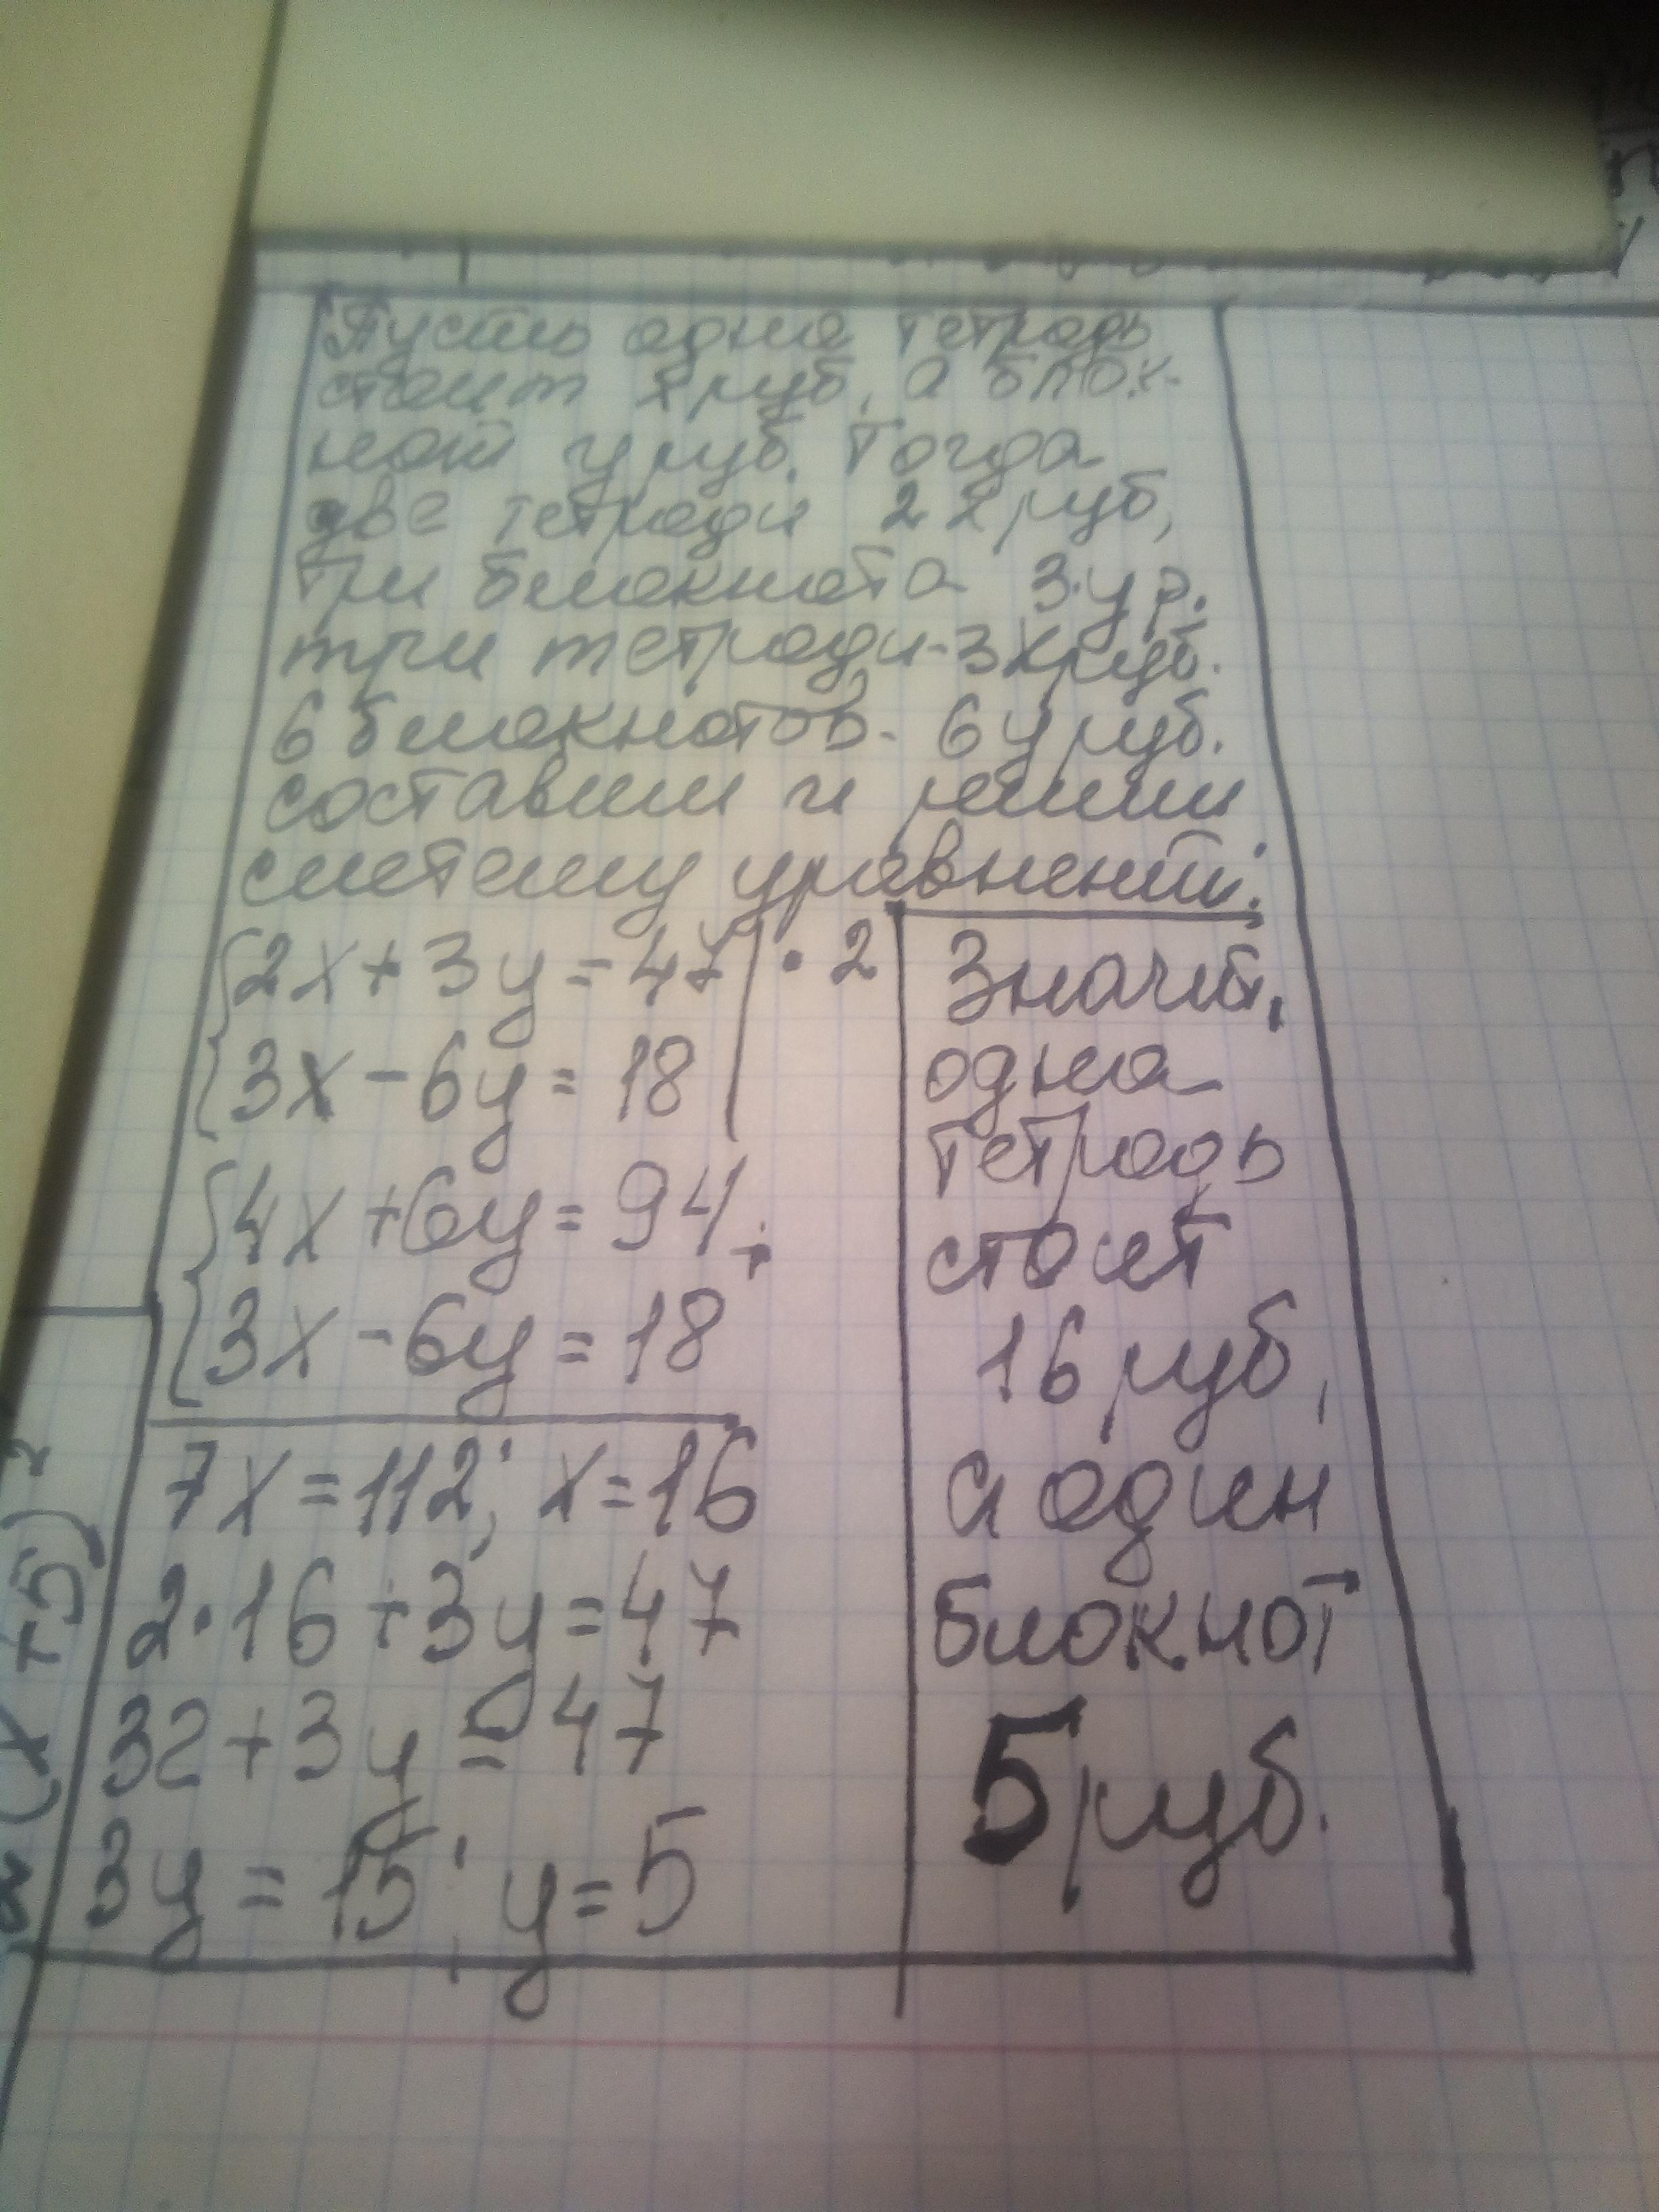 Пусть одна тетрадь
стоит х руб, а блок-
нот у руб. Тогда
две тетради 2х руб,
Три блокнота 3·у р.
три тетради-3х руб.
6 блокнотов- 6у руб.
составим и решим
систему уравнений:
{2x+3y=47|·2
{3x-6y=18|
{4x+6y=94
+
{3x-6y=18
7x=112; x=16
2·16+3y=47
32+3y=47
3y=15; y=5
Значит,
одна
тетрадь
стоит
16 руб,
а один
блокнот
5 руб.
(x+5)²